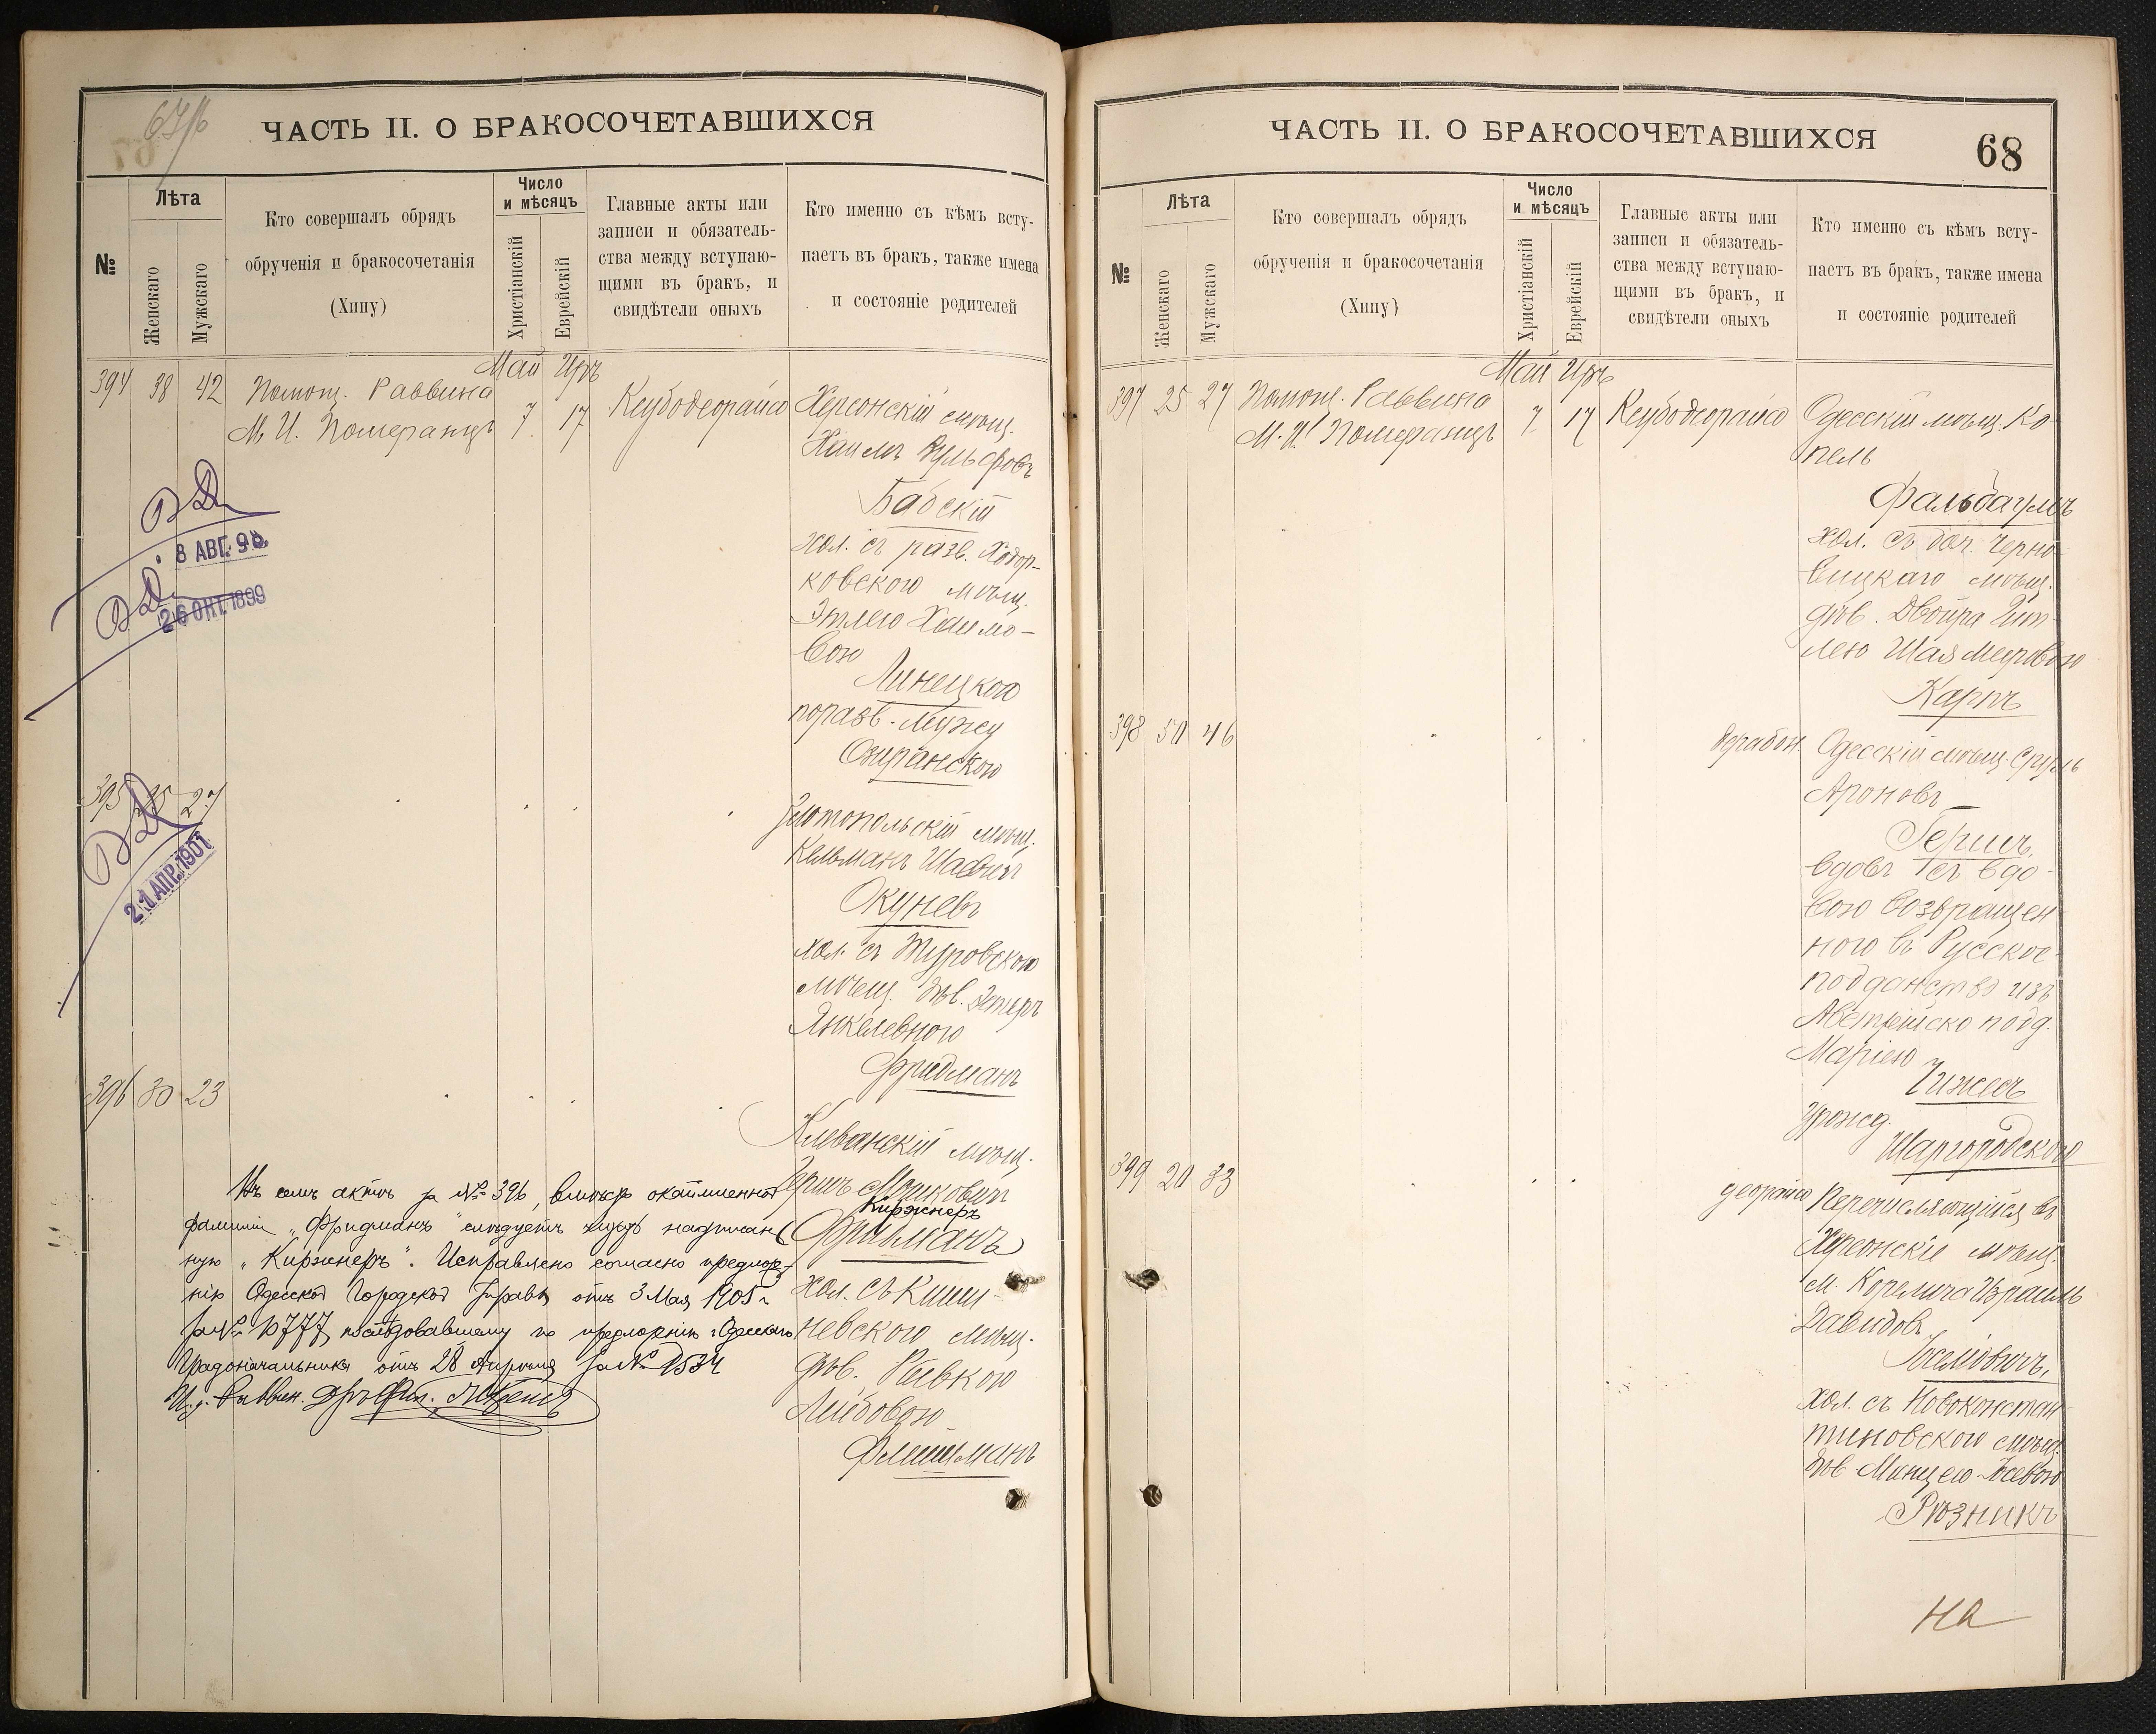 67/б
ЧАСТЬ II. О БРАКОСОЧЕТАВШИХСЯ
№
Лѣта
Женскаго
Мужскаго
Кто совершалъ обрядъ
обрученія и бракосочетанія
(Хипу)
Число
и мѣсяцъ
Христіанскій
Еврейскій
Главные акты или
записи и обязатель-
ства между вступаю-
щими въ бракъ, и
свидѣтели оныхъ
Кто именно съ кѣмъ всту-
паетъ въ бракъ, также имена
и состояніе родителей
Май Иръ
394 38 42 Помощ. Раввина
М. И. Померанцъ 7 17 Ксубодеорайса Херсонскій мѣщ.
Хаимъ Вульфовъ
Бабскій
хол. съ разв. Ходор-
ковскою мѣщ.
Этлею Хаимо-
вою
Линецкою
по разв. мужу
Озиранскою
8 АВГ. 98
26 ОКТ. 1899
395 35 27
Златопольскій мѣщ.
Кельманъ
Окуневъ
хол. съ Туровскою
мѣщ. дѣв. Эстеръ
Янкелевною
Фридманъ
21 АПР. 1901
396 30 23
Клеванскій мѣщ.
Гершъ Мошковичъ
Киржнеръ
Фридманъ
хол. съ Киши-
невскою мѣщ.
дѣв. Ривкою
Лейбовою
Флейшманъ
Въ семъ актѣ за № 396, вмѣсто окаймленной
фамиліи „Фридманъ“ слѣдуетъ надписан-
ную „Киржнеръ“. Исправлено согласно предлож.
нію Одесской Городской Управы отъ 3 Мая 1905 г.
за № 10777, послѣдовавшему по предложенію г. Одесскаго
Градоначальника отъ 28 Апрѣля за № 1534
И. д. Раввин.
ЧАСТЬ II. О БРАКОСОЧЕТАВШИХСЯ
68
№
Лѣта
Женскаго
Мужскаго
Кто совершалъ обрядъ
обрученія и бракосочетанія
(Хипу)
Число
и мѣсяцъ
Христіанскій
Еврейскій
Главные акты или
записи и обязатель-
ства между вступаю-
щими въ бракъ, и
свидѣтели оныхъ
Кто именно съ кѣмъ всту-
паетъ въ бракъ, также имена
и состояніе родителей
Май Иръ
397 25 27 Помощ. Раввина
М. И. Померанцъ 7 17 Ксубодеорайса Одесскій мѣщ. Ко-
пель
Фальбаумъ
хол. съ доч. Черно-
вицкаго мѣщ.
дѣв. Двойра Гит-
лею Шая Меировою
Карпъ
398 50 46
дерабон. Одесскій мѣщ. Сруль
Ароновъ
Гершъ
вдовъ съ вдо-
вою возвращен-
ною въ Русское
подданство изъ
Австрійско подд.
Маріею
Чижесъ
урожд.
Шаргородскою
399 20 33
деорайса Перечисляющійся въ
Херсонскіе мѣщ.
м. Корелича Израиль
Давидовъ
Іоселовичъ,
хол. съ Новоконстан-
тиновскою мѣщ.
дѣв.
Рюзникъ
на